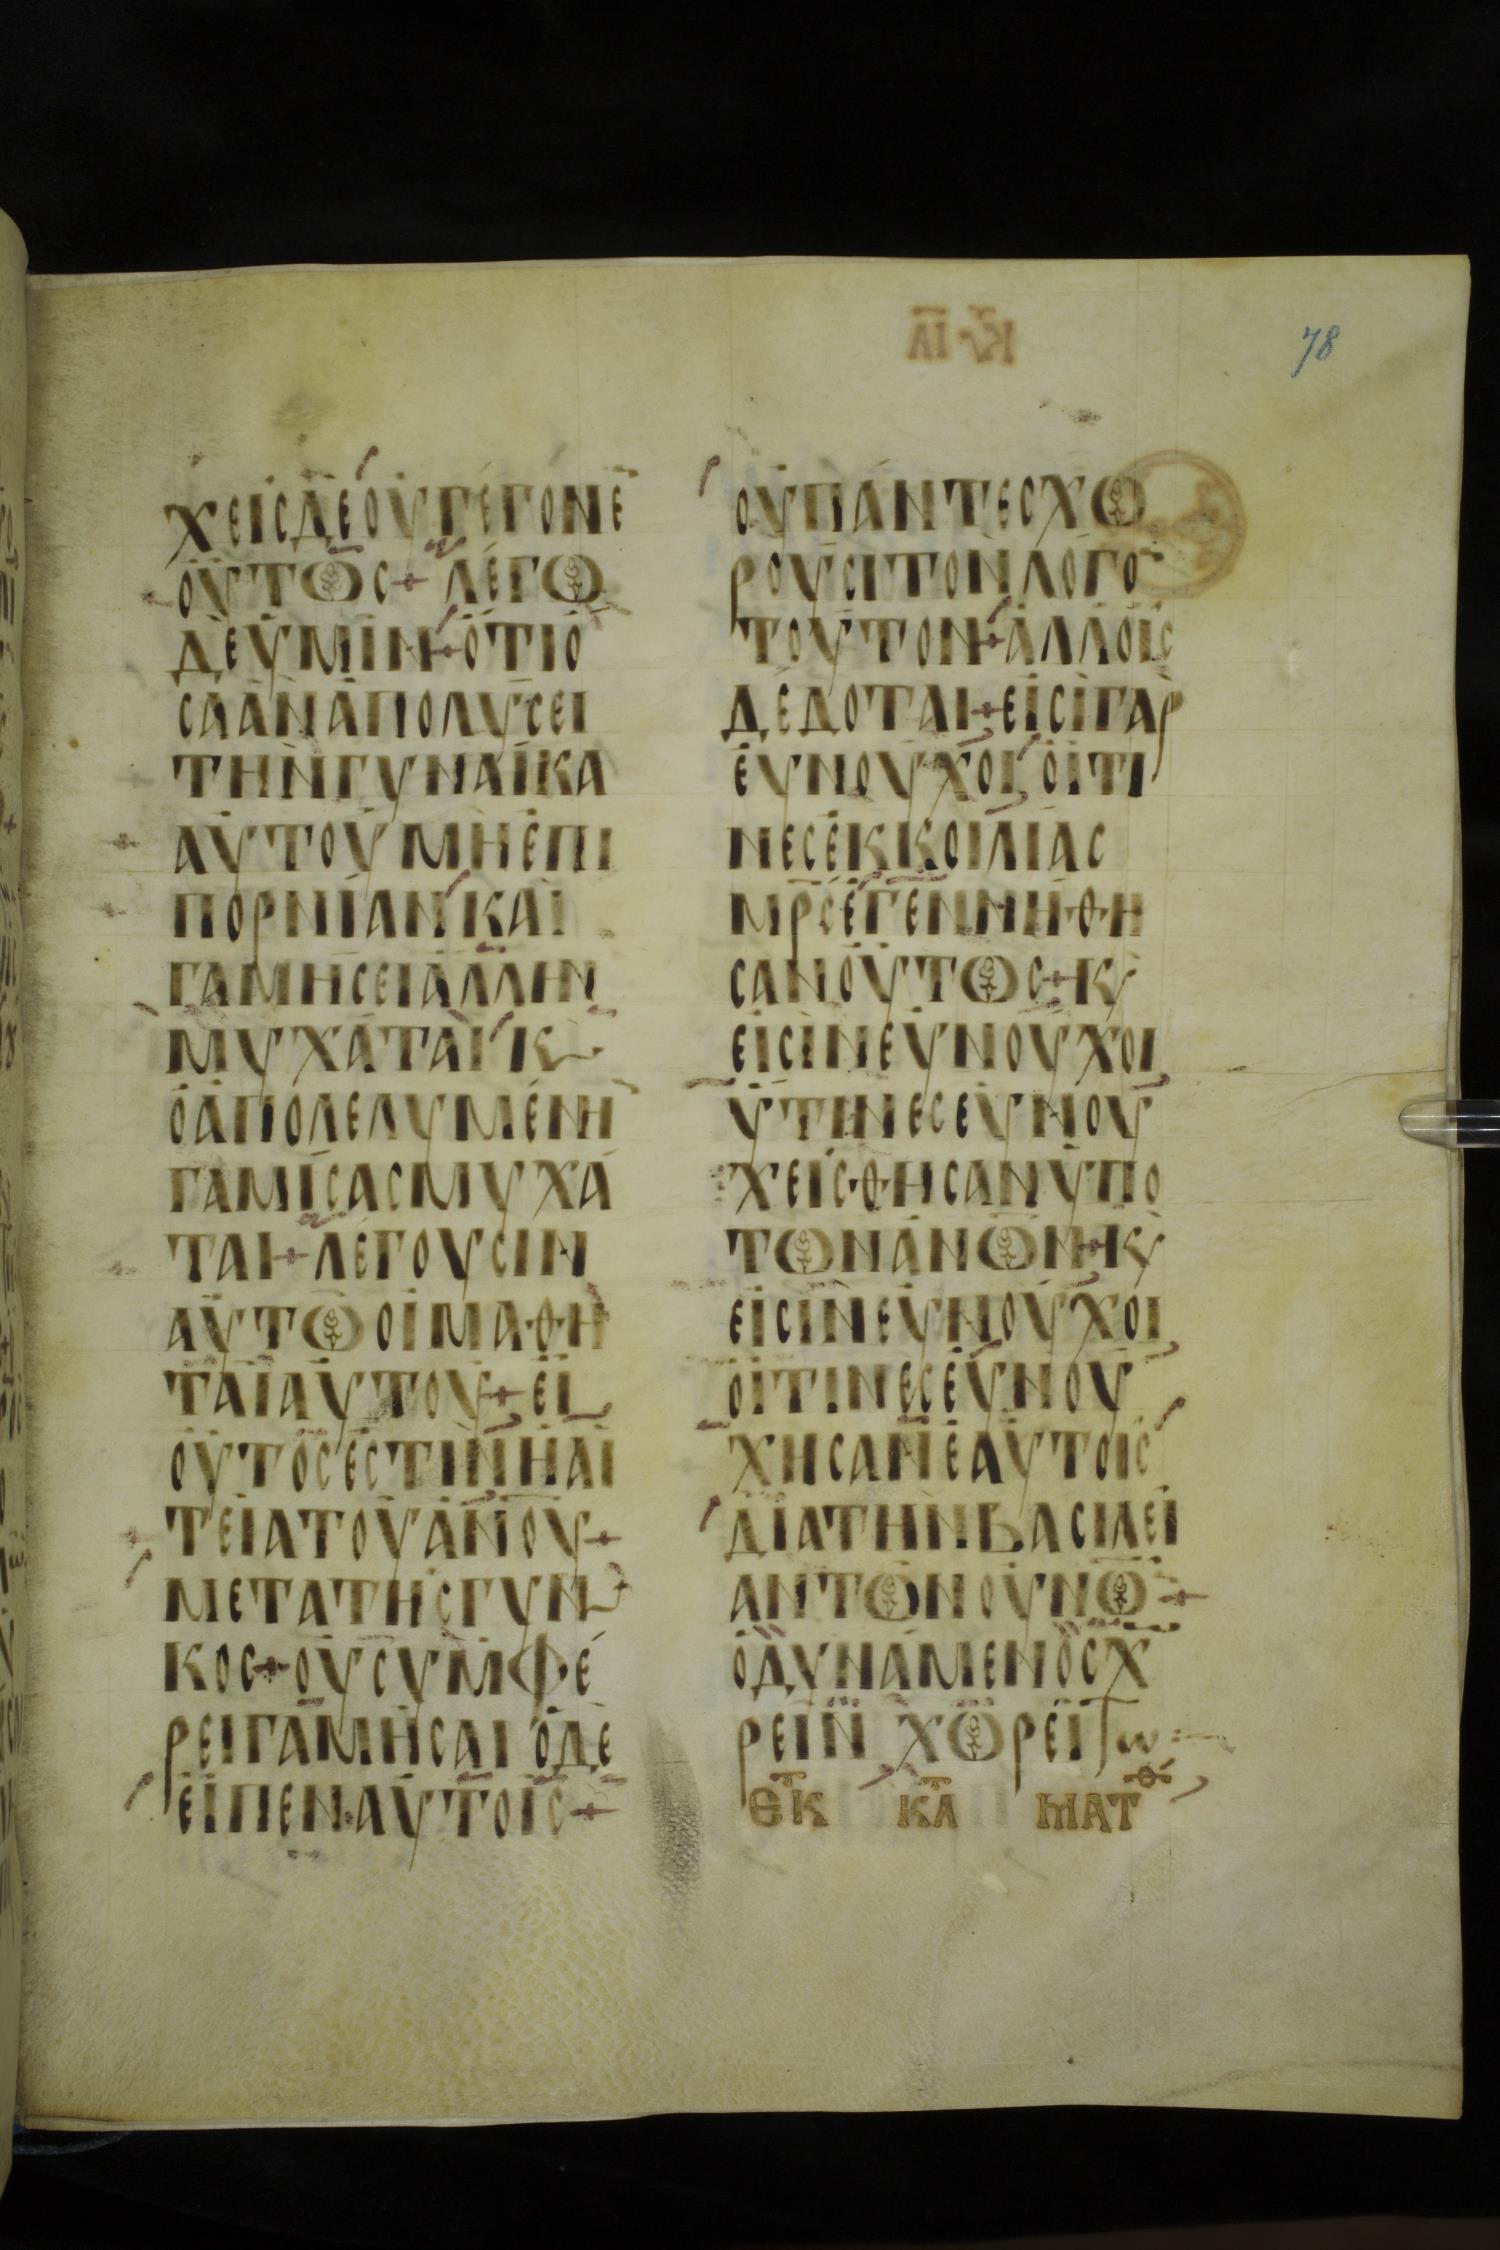 78
ΧΕΙΣΔΕΟΥΓΕΓΟΝΕ
ΟΥΤΩΣ+ΛΕΓΩ
ΔΕΥΜΙΝ+ΟΤΙΟ
ΣΑΑΝΑΠΟΛΥΣΕΙ
ΤΗΝΓΥΝΑΙΚΑ
ΑΥΤΟΥΜΗΕΠΙ
ΠΟΡΝΙΑΝΚΑΙ
ΓΑΜΗΣΕΙΑΛΛΗΝ
ΜΥΧΑΤΑΙΚ
ΟΑΠΟΛΕΛΥΜΕΝΗ
ΓΑΜΙΣΑΣΜΥΧΑ
ΤΑΙ+ΛΕΓΟΥΣΙΝ
ΑΥΤΩΟΙΜΑΘΗ
ΤΑΙΑΥΤΟΥ+ΕΙ
ΟΥΤΟΣΕΣΤΙΝΗΑΙ
ΤΕΙΑΤΟΥΑΝΟΥ+
ΜΕΤΑΤΗΣΓΥΝ
ΚΟΣ+ΟΥΣΥΜΦΕ
ΡΕΙΓΑΜΗΣΑΙΟΔΕ
ΕΙΠΕΝΑΥΤΟΙΣ+
ΟΥΠΑΝΤΕΣΧΩ
ΡΟΥΣΙΤΟΝΛΟΓΟ
ΤΟΥΤΟΝ+ΑΛΛΟΙΣ
ΔΕΔΟΤΑΙ+ΕΙΣΙΓΑΡ
ΕΥΝΟΥΧΟΙΟΙΤΙ
ΝΕΣΕΚΚΟΙΛΙΑΣ
ΜΡΣΕΓΕΝΝΗΘΗ
ΣΑΝΟΥΤΩΣ+Κ
ΕΙΣΙΝΕΥΝΟΥΧΟΙ
ΥΤΙΝΕΣΕΥΝΟΥ
ΧΕΙΣΘΗΣΑΝΥΠΟ
ΤΩΝΑΝΩΝ+Κ
ΕΙΣΙΝΕΥΝΟΥΧΟΙ
ΟΙΤΙΝΕΣΕΥΝΟΥ
ΧΗΣΑΝΕΑΥΤΟΙΣ
ΔΙΑΤΗΝΒΑΣΙΛΕΙ
ΑΝΤΩΝΟΥΝΩ+
ΟΔΥΝΑΜΕΝΟΣΧ
ΡΕΙΝ ΧΩΡΕΙΤω
ΕΚ ΚΑ ΜΑΤΘ